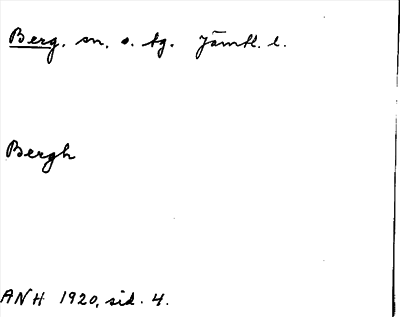 Berg. sn. o. tg. Jämtl. l.
Bergh
ANH 1920, sid. 4.